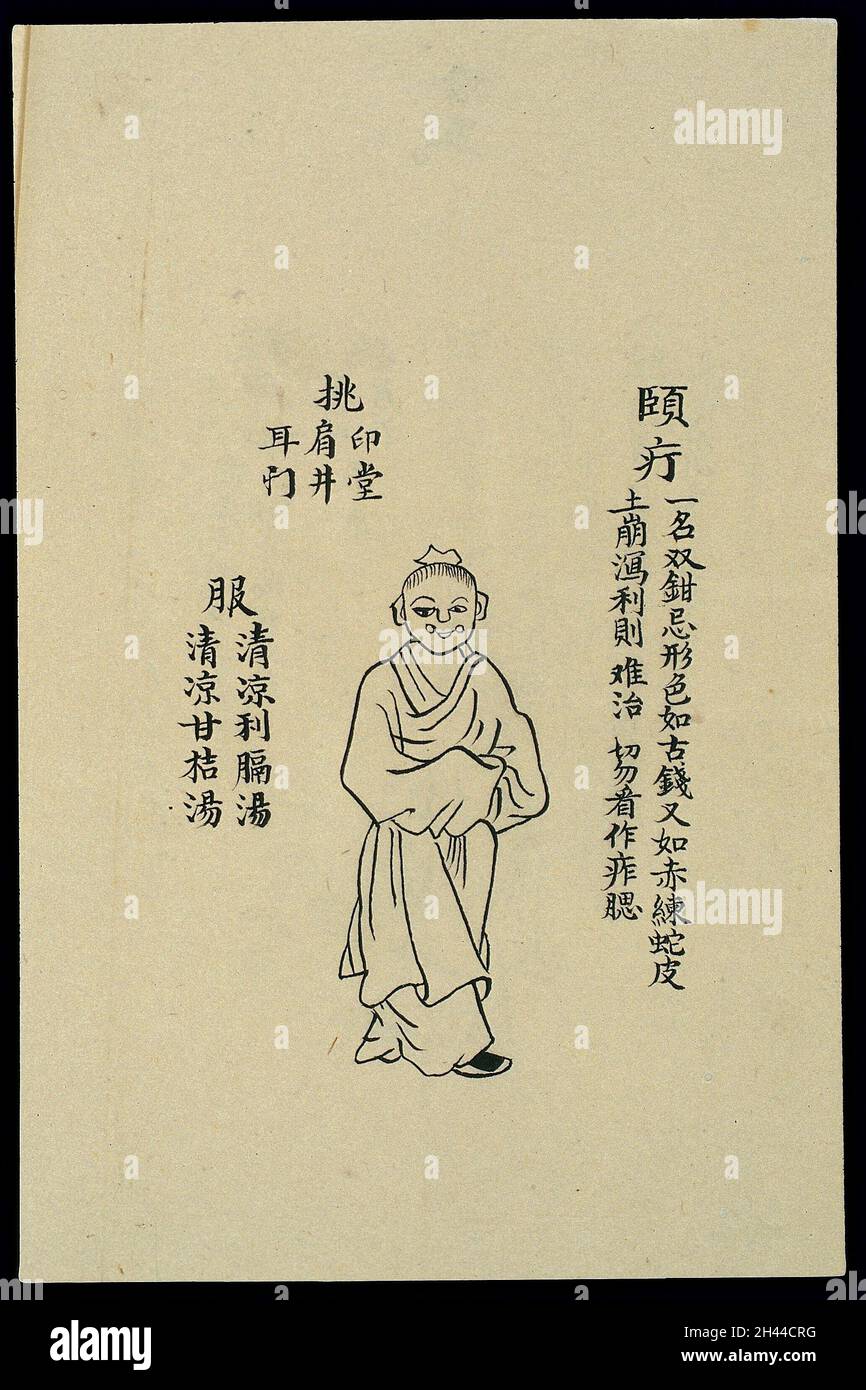 頤疔
一名双鉗忌形色如古錢又如赤練蛇皮
土崩瀉利則难治 切勿看作痄腮
挑
印堂
肩井
耳门
服
清凉利膈湯
清凉甘桔湯
alamy
Image ID: 2H44CRG
www.alamy.com